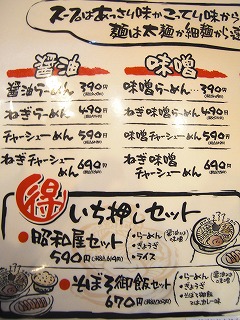 スープはあっさり味かこってり味から
麺は太麺か細麺から
醤油
醤油らーめん 390円
ねぎらーめん 490円
チャーシューめん 590円
ねぎチャーシューめん 690円
味噌
味噌らーめん… 390円
ねぎ味噌らーめん 490円
味噌チャーシューめん 590円
ねぎ味噌チャーシューめん 690円
得 いち押しセット
●昭和屋セット
590円
・らーめん(醤油or味噌)
・ぎょうざ
・ライス
●そぼろ御飯セット
670円
・らーめん(醤油or味噌)
・ぎょうざ
・そぼろ御飯